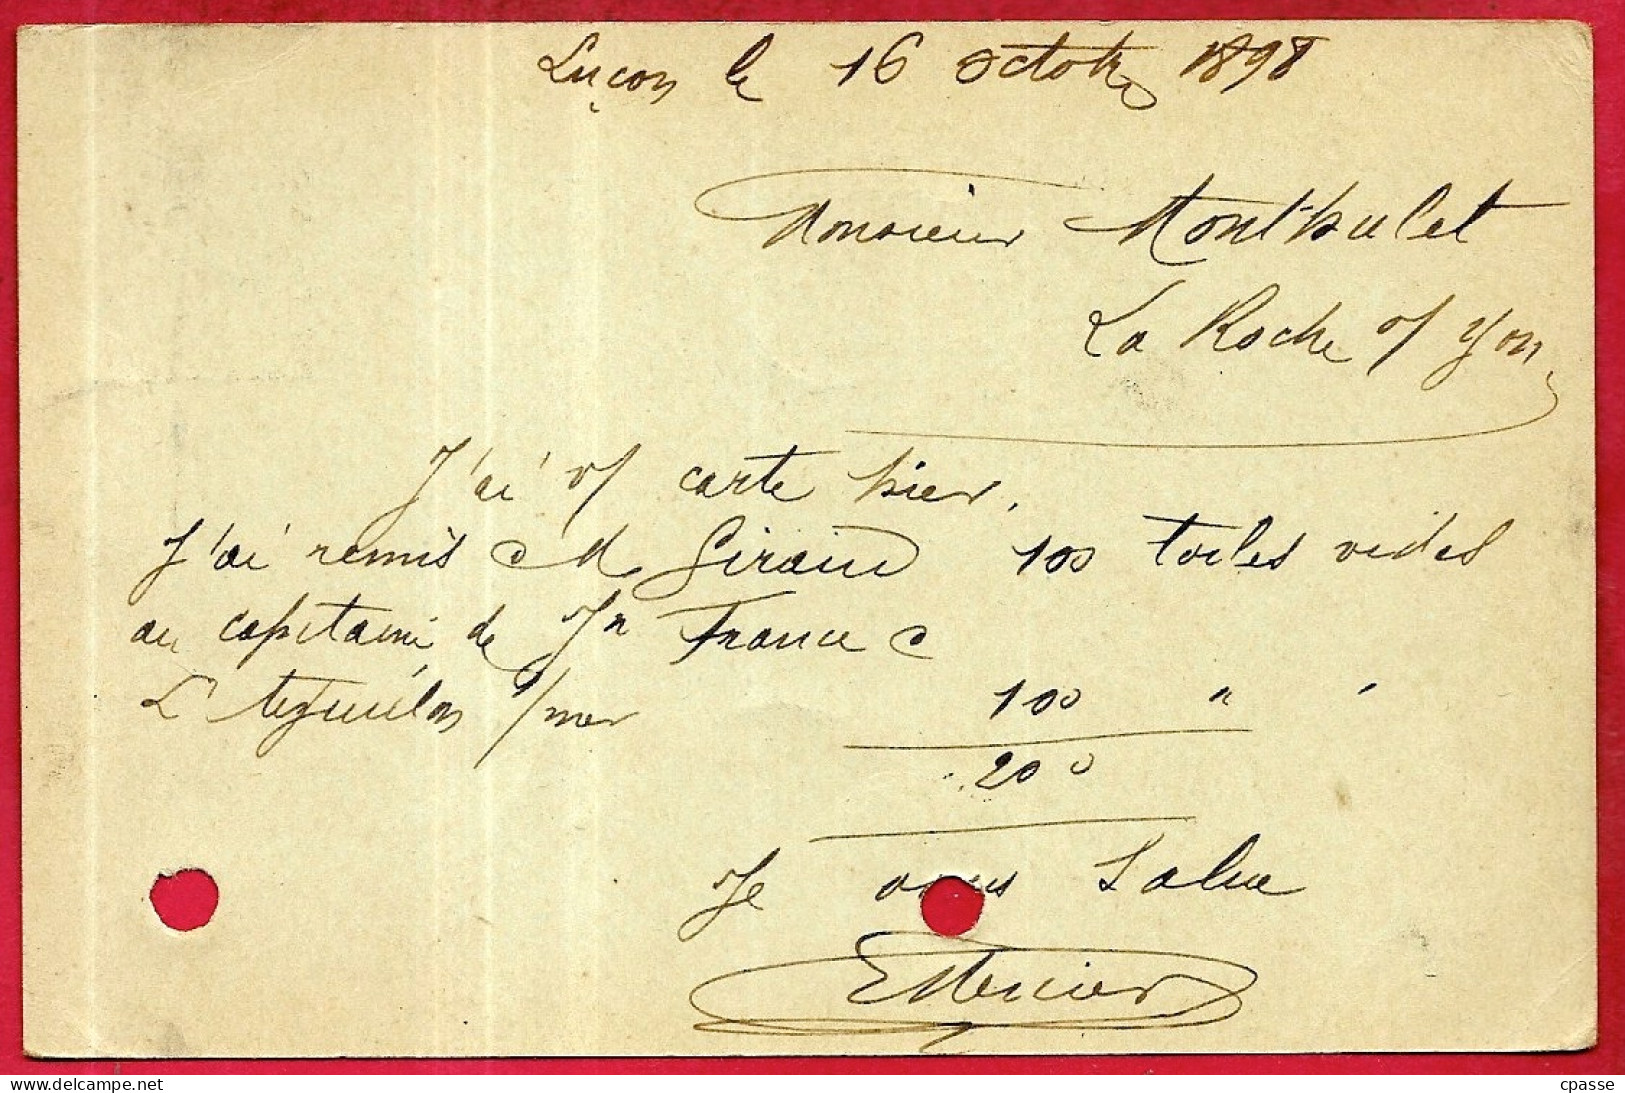 Luçon le 16 octobre 1898
Monsieur Monthulet
La Roche s/ Yon
J'ai v/ carte hier.
J'ai remis a M Giraud 100 toiles vides
au capitaine de Jn France a
L'Aeguillon s/mer 100 " "
200
Je vous Salue
EMercier
cpasse